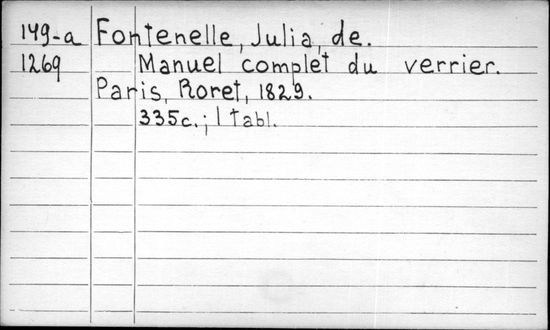 149-a Fontenelle, Julia, de.
1269 Manuel complet du verrier.
Paris, Roret, 1829.
335c.; 1 tabl.